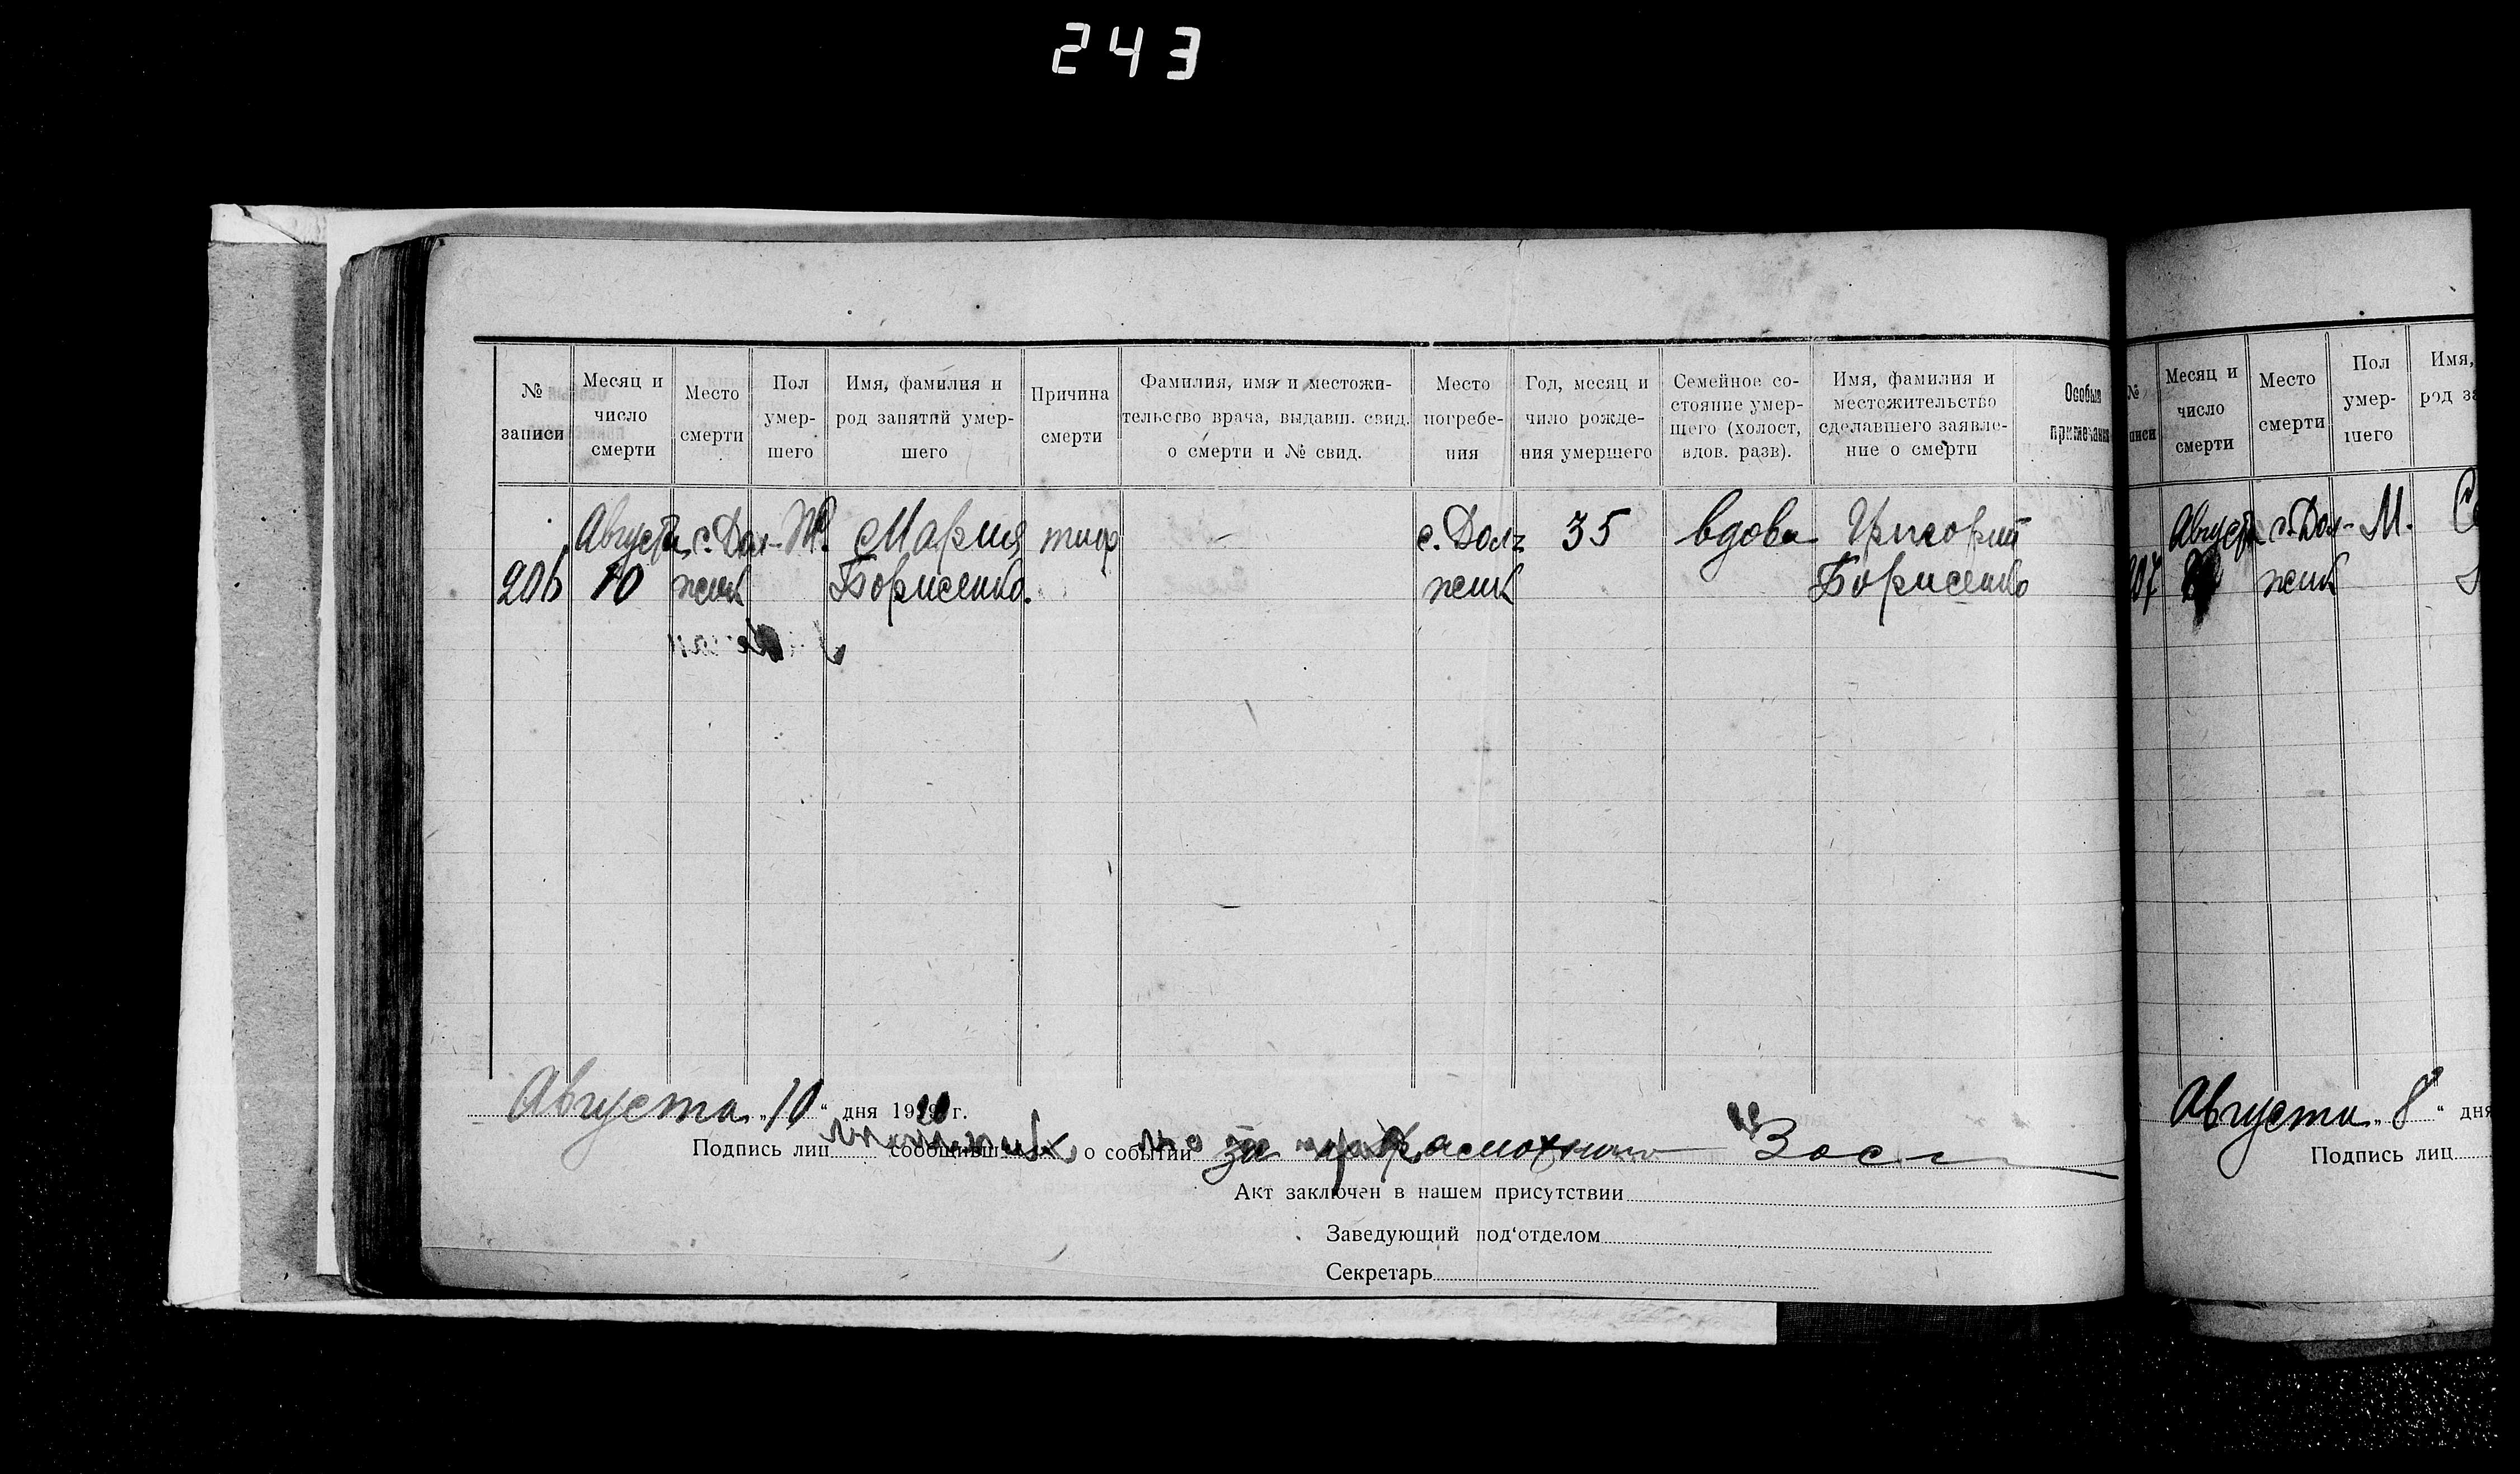 243
№ записи
Месяц и число смерти
Место смерти
Пол умер-шего
Имя, фамилия и род занятий умер-шего
Причина смерти
Фамилия, имя и местожи-тельство врача, выдавш. свид. о смерти и № свид.
Место погребе-ния
Год, месяц и чило рожде-ния умершего
Семейное со-стояние умер-шего (холост, вдов. разв).
Имя, фамилия и местожительство сделавшего заявле-ние о смерти
Особыя примечания
206
Августа 10
с. Дол-жик
Ж.
Мария Борисенко.
тиф
-
с. Долж жик
35
вдова
Григорий Борисенко
Августа „10“ дня 19 г.
Подпись лиц сообщивш о событии за
Акт заключен в нашем присутствии
Заведующий под‘отделом
Секретарь
№
Месяц и число смерти
Место смерти
Пол умер-шего
Имя,
род за
207
Августа
с. Дол-жик
М.
Августа „8“ дня
Подпись лиц